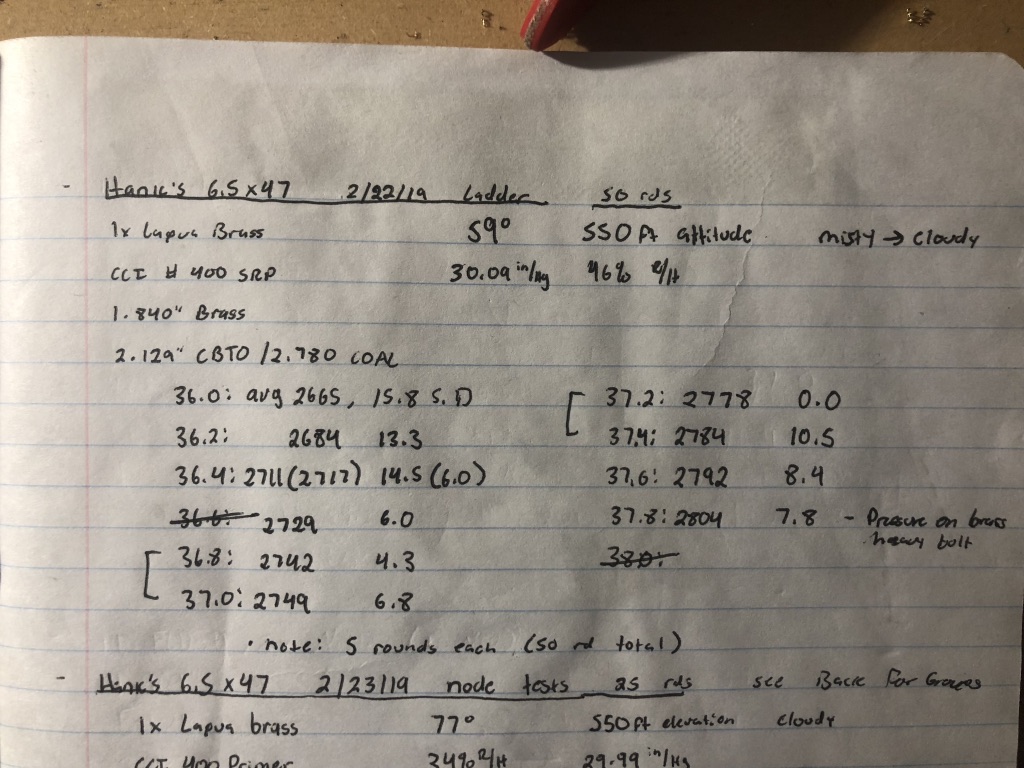 - Hank's 6.5x47 2/22/19 Ladder 50 rds
1x Lapua Brass 59° 550 ft altitude misty → cloudy
CCI # 400 SRP 30.09 in/Hg 46% R/H
1.840" Brass
2.129" CBTO / 2.780 COAL
36.0: avg 2665, 15.8 S.D
36.2: 2684 13.3
36.4: 2711 (2717) 14.5 (6.0)
36.6: 2729 6.0
36.8: 2742 4.3
37.0: 2749 6.8
37.2: 2778 0.0
37.4: 2784 10.5
37.6: 2792 8.4
37.8: 2804 7.8 - Pressure on brass
heavy bolt
38.0:
• note: 5 rounds each (50 rd total)
- Hank's 6.5x47 2/23/19 node tests 25 rds see Back For Groups
1x Lapua brass 77° 550 ft elevation cloudy
CCI 400 Primer 34% R/H 29.99 in/Hg